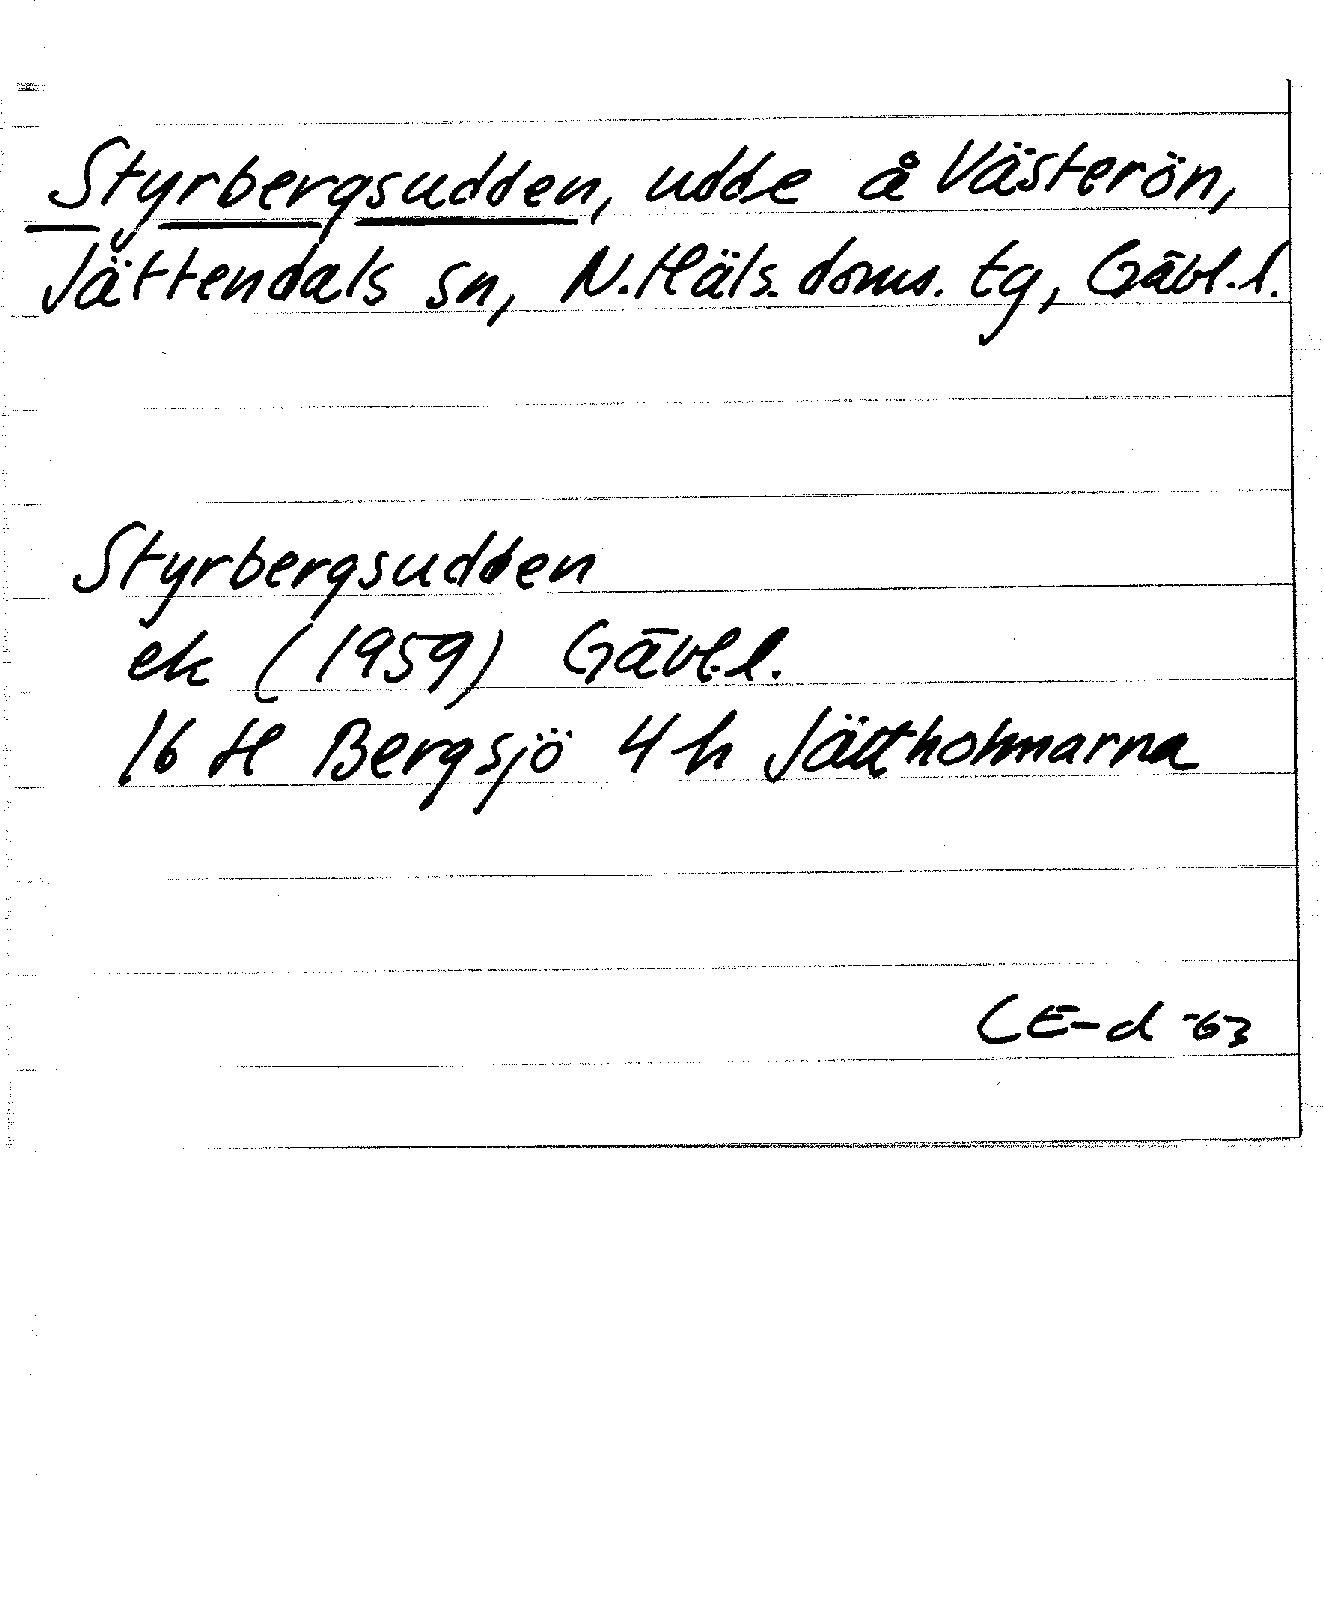 Styrbergsudden, udde å Västerön,
Jättendals sn, N.Häls. doms. tg, Gävl.l.
Styrbergsudden
ek (1959) Gävl.l.
16 H Bergsjö 4 h Jättholmarna
CE-d -63